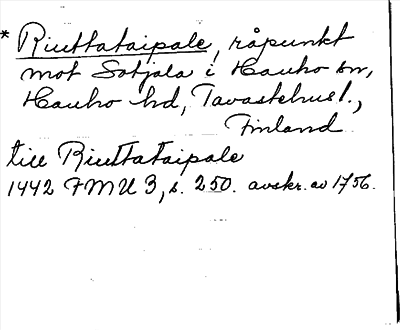 * Riuttataipale, råpunkt
mot Sotjala i Hauho sn,
Hauho hd, Tavastehus l.,
Finland
till Riuttataipale
1442 FMU 3, s. 250. avskr. av 1756.